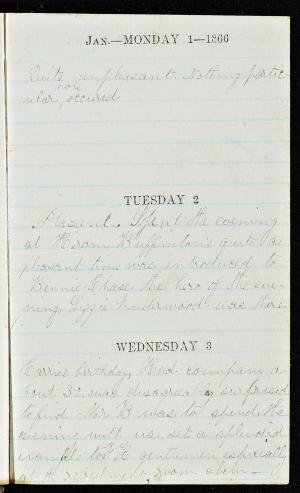 JAN.—MONDAY 1—1866
Quite unpleasant. Nothing partic-
now
ular, occured
TUESDAY 2
Plasent. Spent the evening
at Hiram Buffinton's quite a
pleasant time was introduced to
Bennie Chase the hero of the eve-
ning. Lizzie Underwood was there.
WEDNESDAY 3
Carries birthday, Had company a-
bout 30. was disagreably surprised
to find Mr. B was to spend the
evening with us. set a splendid
example to gentlemen especially
at the refreshment room ahem—